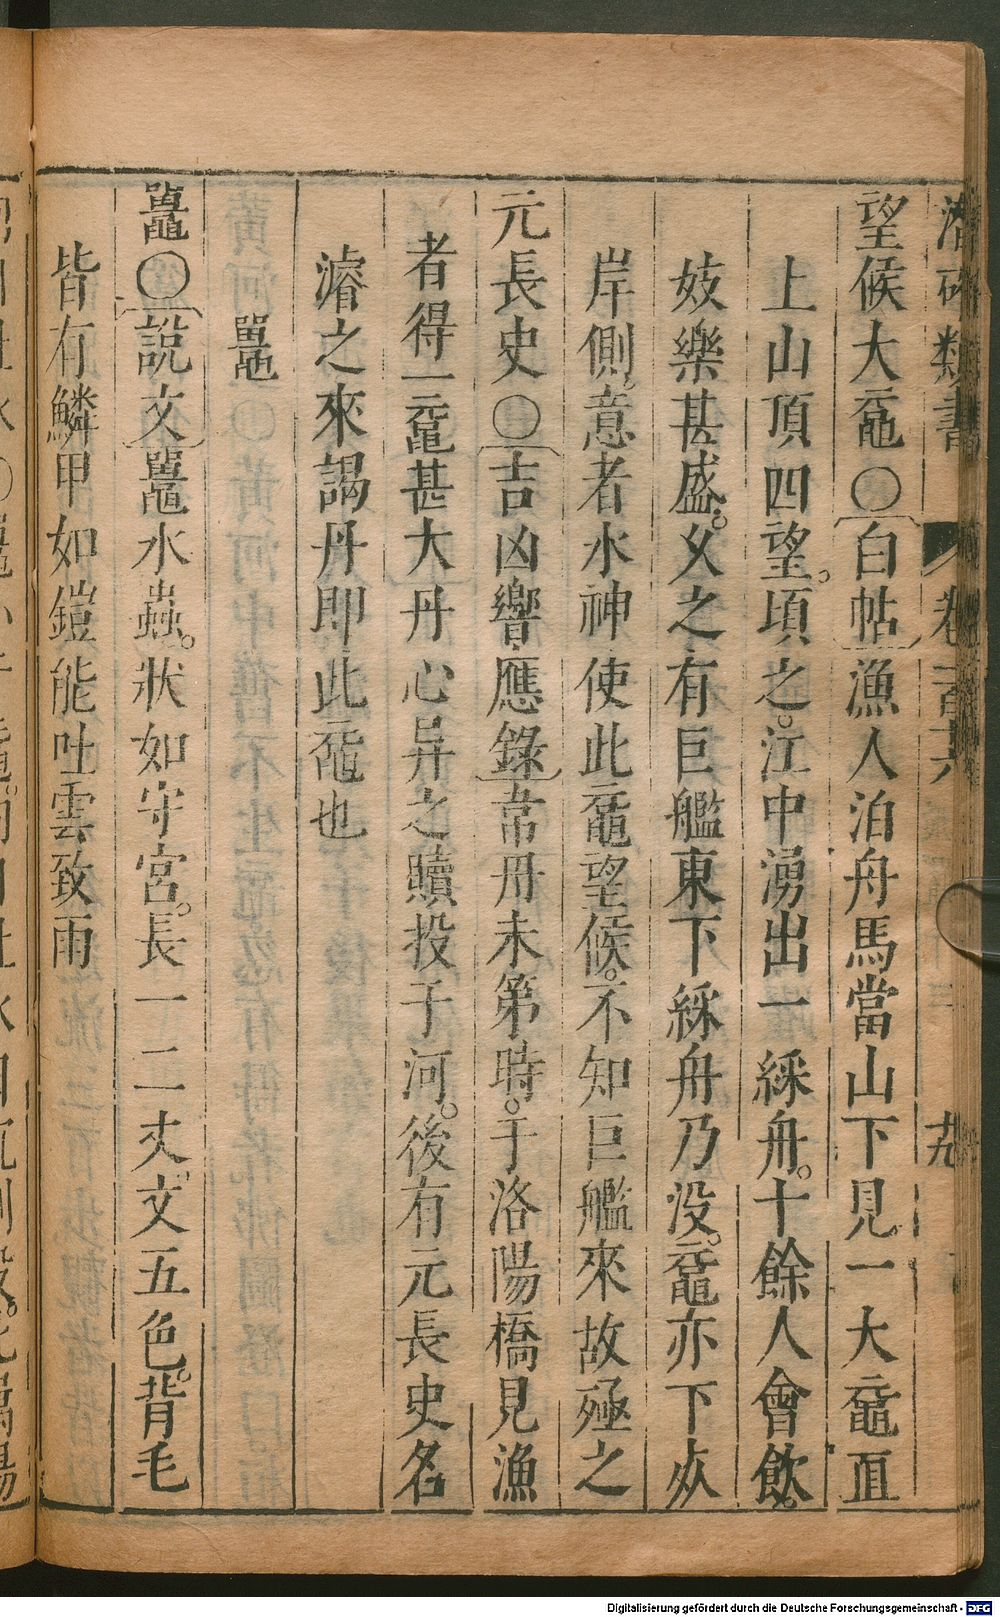 潛確類書 卷一百十六 十九
望候大黿〇白帖漁人泊舟馬當山下見一大黿直
上山頂四望。頃之。江中湧出一綵舟。十餘人會飲。
妓樂甚盛。久之有巨艦東下綵舟乃没。黿亦下山
岸側。意者水神使此黿望候。不知巨艦來故殛之
元長史〇吉凶響應錄韋丹未第時。于洛陽橋見漁
者得一黿甚大丹心异之贖投于河。後有元長史名
濬之來謁丹即此黿也
鼉
鼉〇說文鼉水蟲。狀如守宮。長一二丈。文五色。背毛
皆有鱗甲如鎧能吐雲致雨
Digitalisierung gefördert durch die Deutsche Forschungsgemeinschaft - DFG